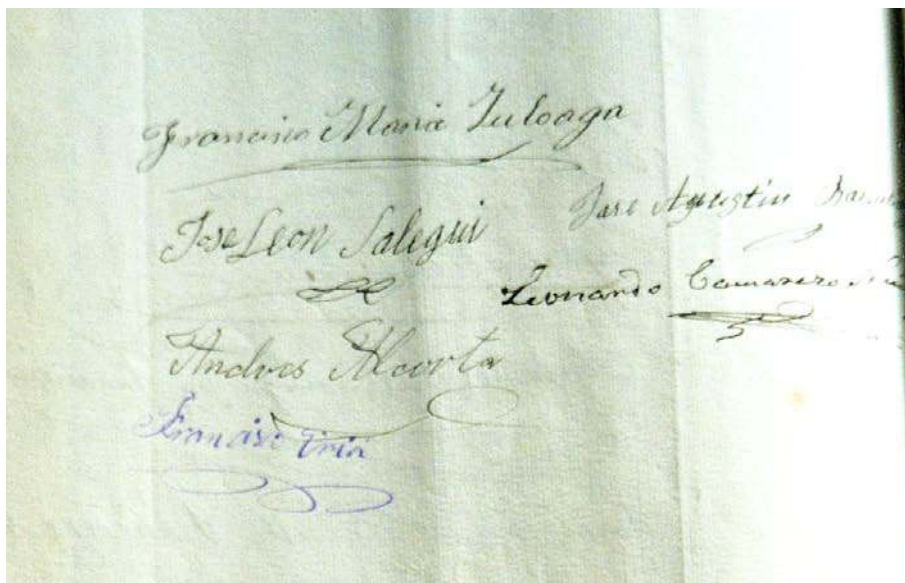 Francisco Maria Zuloaga
Jose Leon Salegui
Jose Agustin
Leonardo Camarero
Andres Alcorta
Francisco